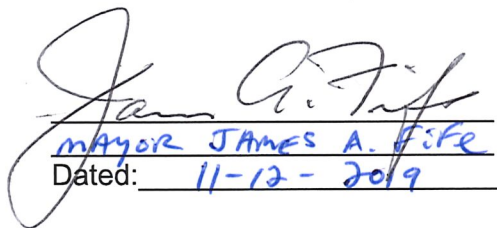 James A. Fife
MAYOR JAMES A. FIFE
Dated: 11-12-2019